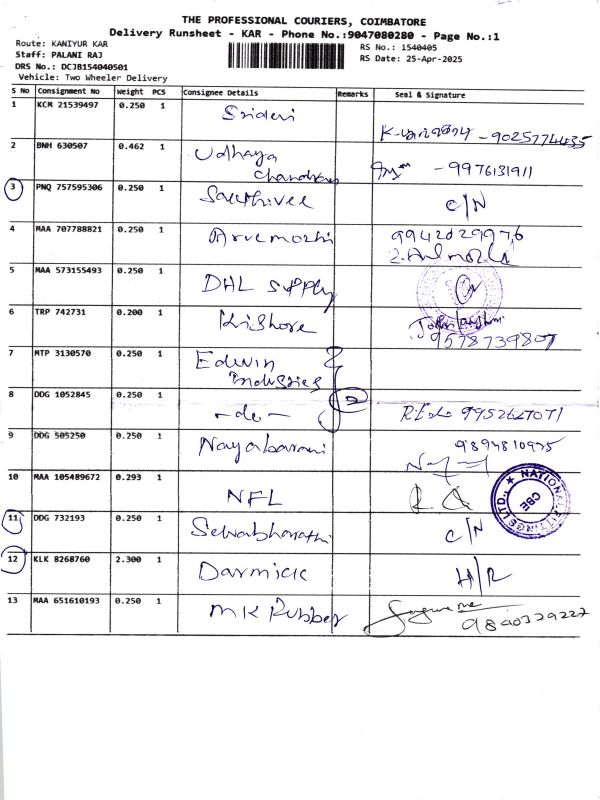 THE PROFESSIONAL COURIERS, COIMBATORE
Delivery Runsheet - KAR - Phone No.:9047080280 - Page No.:1
Route: KANIYUR KAR
Staff: PALANI RAJ
DRS No.: DCJB154040501
Vehicle: Two Wheeler Delivery
RS No.: 1540405
RS Date: 25-Apr-2025
S No Consignment No Weight PCS Consignee Details Remarks Seal & Signature
1 KCM 21539497 0.250 1 Sridevi
- 9025774435
2 BNH 630507 0.462 1 Udhaya
Chandran - 9976131911
3 PNQ 757595306 0.250 1 C/N
4 MAA 707788821 0.250 1 Arvemozhi 9942029976
5 MAA 573155493 0.250 1 DHL Supply
6 TRP 742731 0.200 1 Kishore
9578739807
7 MTP 3130570 0.250 1 Edwin
Industries
8 DDG 1052845 0.250 1 -do- 2 9952627071
9 DDG 505250 0.250 1 9894810975
10 MAA 105489672 0.293 1 NFL
NATIONAL FITTINGS LTD.,
CBE
11 DDG 732193 0.250 1 Selvabharathi C/N
12 KLK 8268760 2.300 1 Darmick H/R
13 MAA 651610193 0.250 1 MK Rubber
9840329227